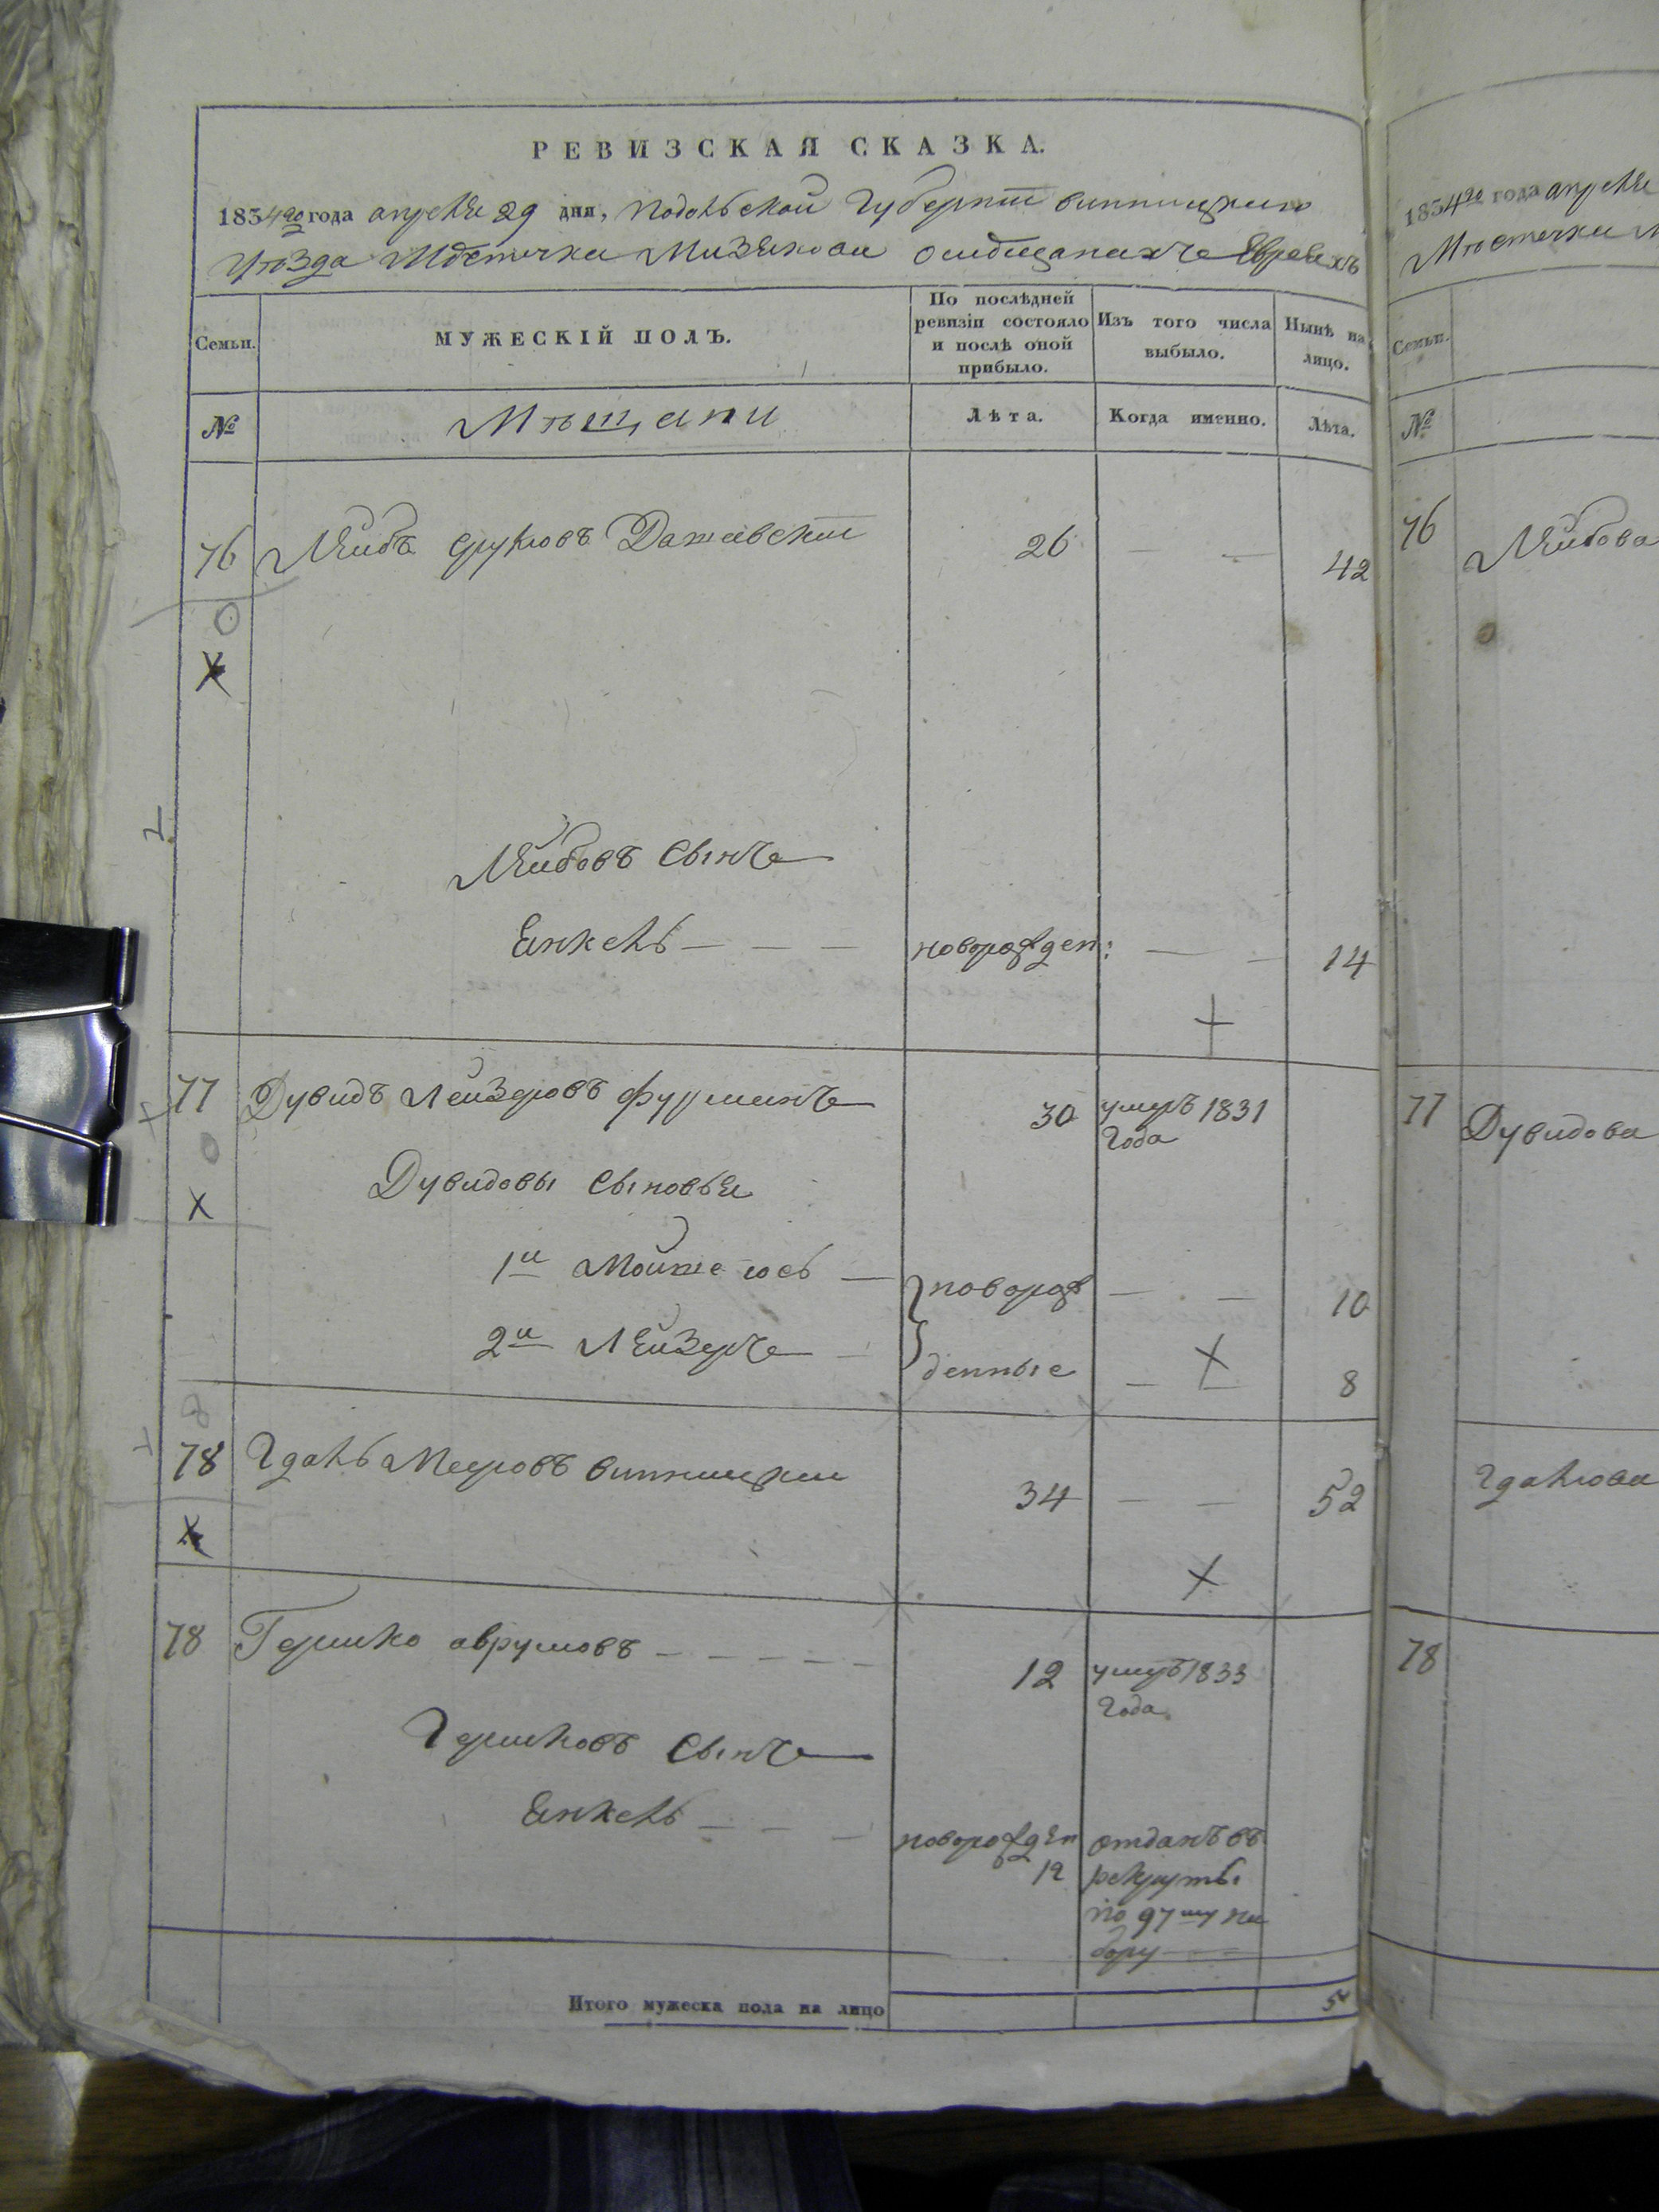 РЕВИЗСКАЯ СКАЗКА.
1834го года апреля 29 дня, Подольской Губернии винницкого
уѣзда Мѣстечка Мизякова о мѣщанахъ Евреяхъ
Семьи.
МУЖЕСКІЙ ПОЛЪ.
По послѣдней ревизіи состояло и послѣ оной прибыло.
Изъ того числа выбыло.
Нынѣ на лицо.
№
Мѣщани
Лѣта.
Когда именно.
Лѣта.
76 Лейбъ Сруловъ Дашевскій 26 — — 42
Лейбовъ Сынъ
Янкель — — — новорожден: — — 14
77 Дувидъ Лейзеровъ Фурманъ 30 умеръ 1831
года
Дувидовы Сыновья
1й Мошко Іось — новорож — — 10
2й Лейзеръ — денные — — 8
78 Гдаль Мееровъ винницкій 34 — — 52
78 Гершко аврумовъ — — — — — 12 умеръ 1833
года
Гершковъ Сынъ
Янкель — — — новорожден отданъ въ
12 рекруты
по 97му на
бору
Итого мужеска пола на лицо 5
1834го года апреля
Мѣстечка М
Семьи.
№
76 Лейбова
77 Дувидова
Гдалюва
78